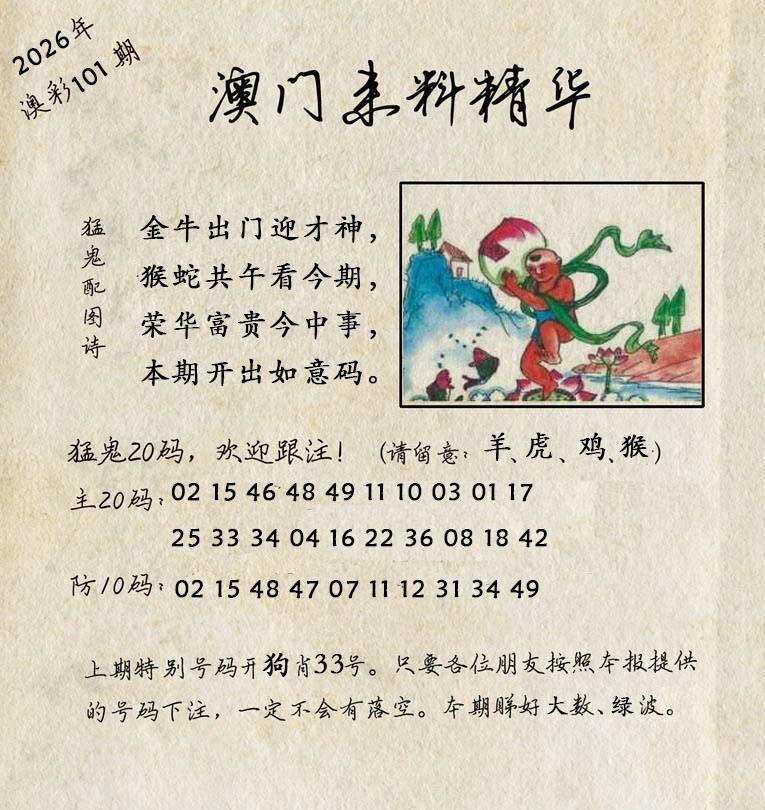 2026年
澳彩101期
澳门来料精华
猛鬼配图诗
金牛出门迎才神，
猴蛇共午看今期，
荣华富贵今中事，
本期开出如意码。
猛鬼20码，欢迎跟注！（请留意：羊、虎、鸡、猴）
主20码：02 15 46 48 49 11 10 03 01 17
25 33 34 04 16 22 36 08 18 42
防10码：02 15 48 47 07 11 12 31 34 49
上期特别号码开狗肖33号。只要各位朋友按照本报提供
的号码下注，一定不会有落空。本期睇好大数、绿波。